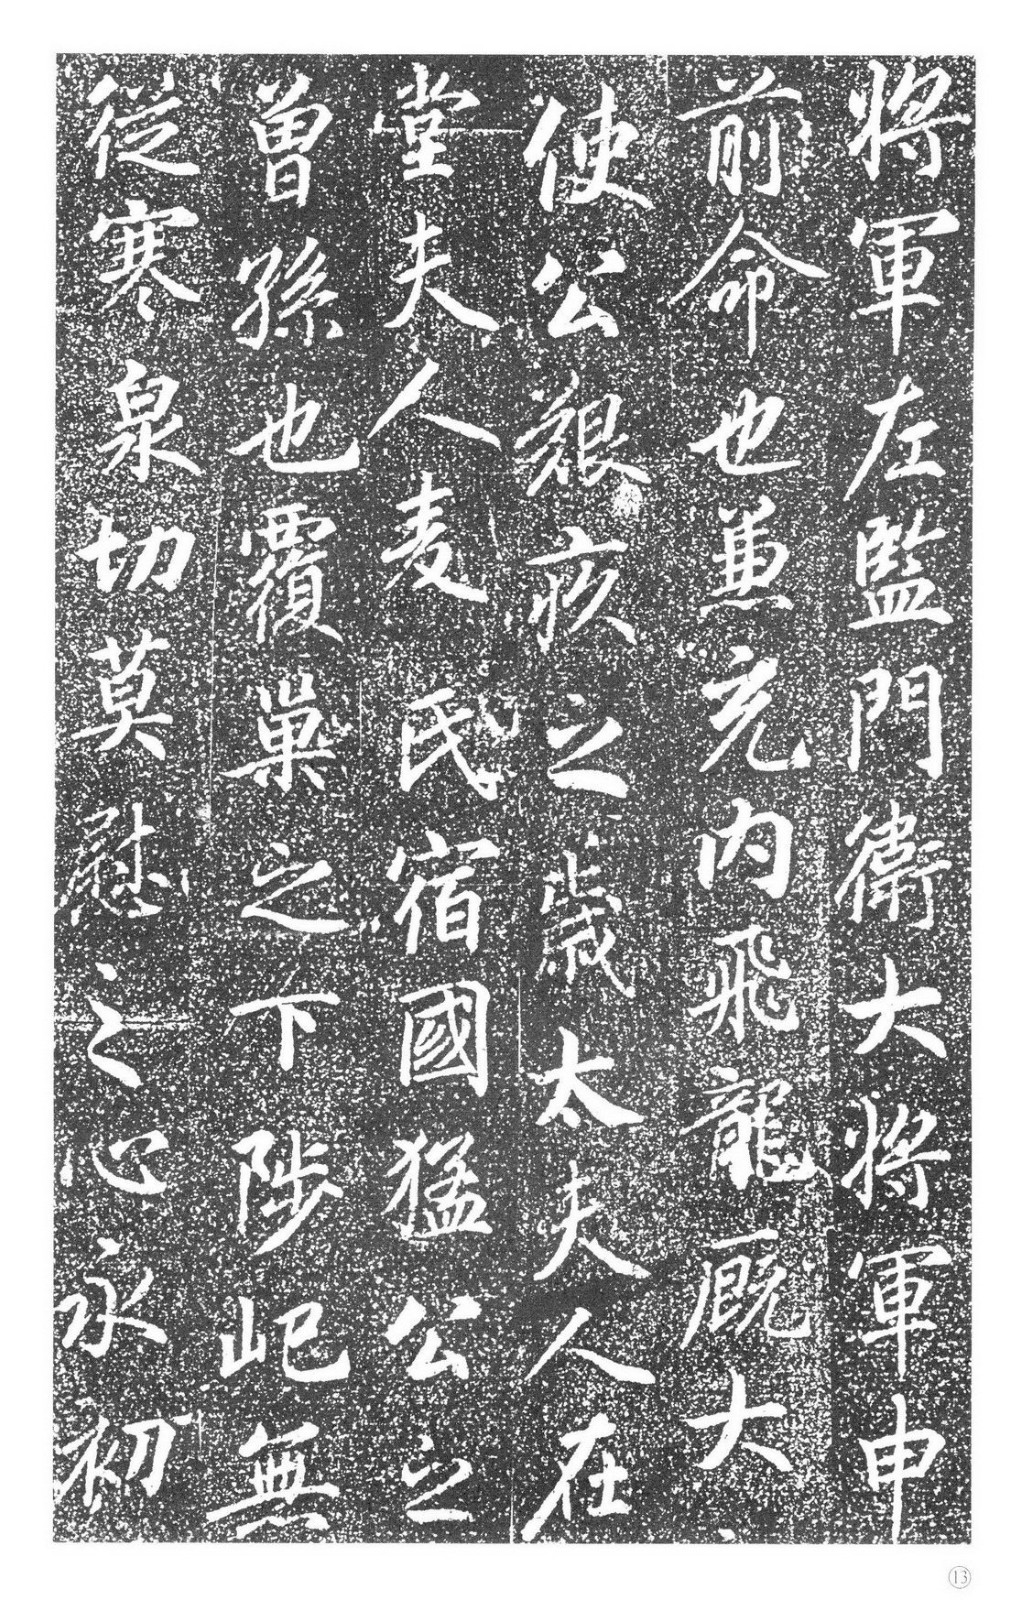 將軍左監門衛大將軍申
前命也兼充內飛龍廐大
使公艱疚之歲太夫人在
堂夫人麦氏宿國猛公之
曾孫也覆巢之下陟屺無
從寒泉切莫慰之心永初
⑬